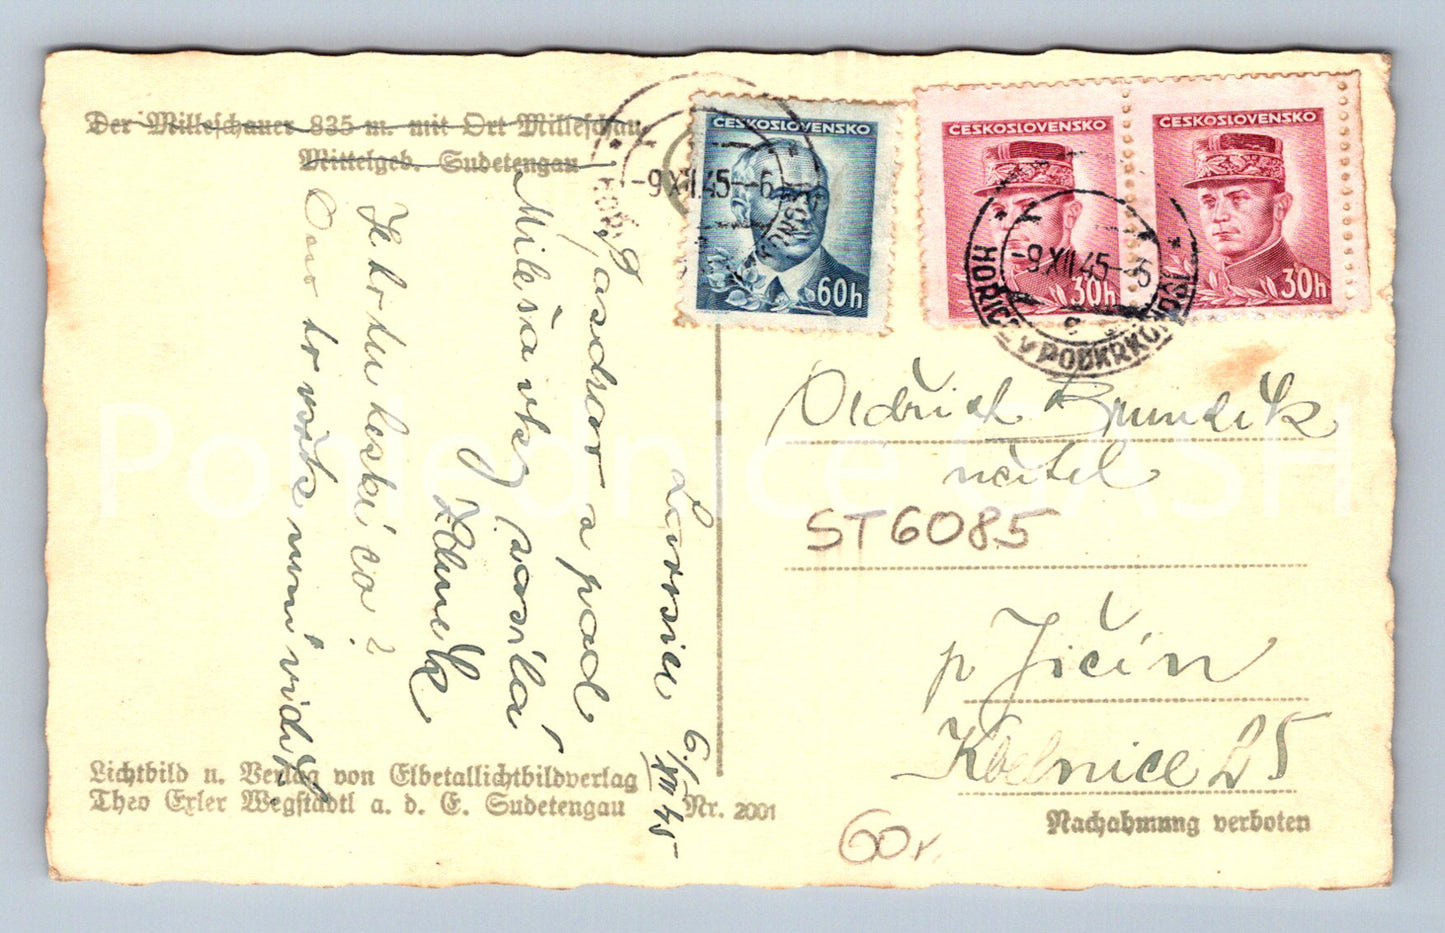 Der Milleschauer 835 m. mit Ort Milleschau
Mittelgeb. Sudetengau
ČESKOSLOVENSKO
60h
ČESKOSLOVENSKO
30h
ČESKOSLOVENSKO
30h
-9 XII.45--6
-9 XII.45--6
HOŘICE V PODKRKONOŠÍ
6./XII 45
Pozdrav a pod
Milešovky posílá
Zdeněk
Je to hezké co?
Ono to vždy není vidět
Oldřich Brundík
učitel
ST6085
p Jičín
Kbelnice 25
60,-
Lichtbild u. Verlag von Elbetallichtbildverlag
Theo Exler Wegstädtl a. d. E. Sudetengau
Nr. 2001
Nachahmung verboten
Pohlednice GASH